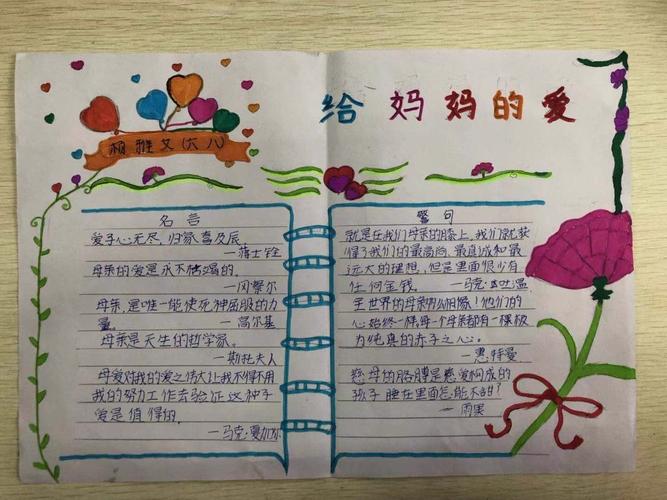 给妈妈的爱
雅文(六八)
名言
爱子心无尽,归家喜及辰
—蒋士铨
母亲的爱是永不枯竭的,
—冈察尔
母亲,是唯一能使死神屈服的力
量。 —高尔基
母亲是天生的哲学家。
—斯托夫人
母爱对我的爱之伟大让我不得不用
我的努力工作去验证这种
爱是值得的。
—马克·夏加尔
警句
就是在我们母亲的膝上,我们就获
得了我们的最高尚、最真诚和最
远大的理想,但是里面很少有
任何金钱。 —马克·吐温
全世界的母亲多么相像!他们的
心始终一样,每个母亲都有一棵极
为纯真的赤子之心。
—惠特曼
慈母的胳膊是慈爱构成的
孩子睡在里面怎能不甜?
—雨果